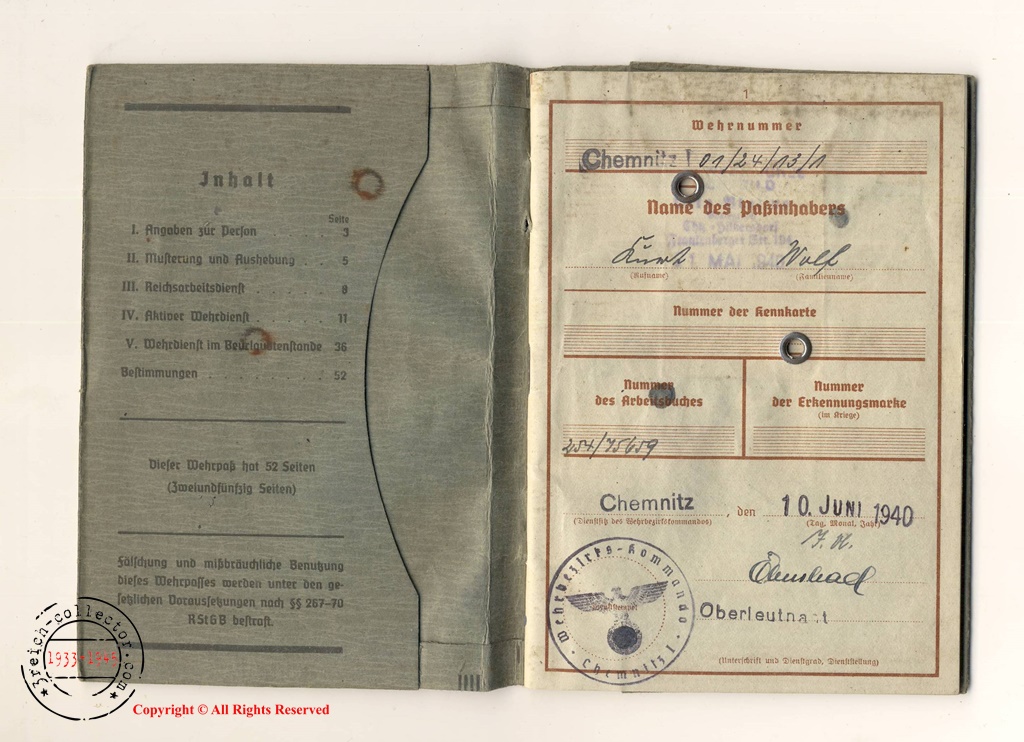 Inhalt
Seite
I. Angaben zur Person . . . . . . 3
II. Musterung und Aushebung . . . . 5
III. Reichsarbeitsdienst . . . . . . . 8
IV. Aktiver Wehrdienst . . . . . . . 11
V. Wehrdienst im Beurlaubtenstande 36
Bestimmungen . . . . . . . . . 52
Dieser Wehrpaß hat 52 Seiten
(Zweiundfünfzig Seiten)
Fälschung und mißbräuchliche Benutzung
dieses Wehrpasses werden unter den ge-
setzlichen Voraussetzungen nach §§ 267-70
RStGB bestraft.
3reich-collector.com
1933-1945
Copyright © All Rights Reserved
1
Wehrnummer
Chemnitz I 01/24/13/1
Name des Paßinhabers
Kurt Wolf
(Rufname) (Familienname)
Nummer der Kennkarte
Nummer
des Arbeitsbuches
254/75659
Nummer
der Erkennungsmarke
(im Kriege)
Chemnitz, den 10. JUNI 1940
(Dienstsitz des Wehrbezirkskommandos) (Tag, Monat, Jahr)
Wehrbezirks-Kommando
Chemnitz I
Oberleutnant
(Unterschrift und Dienstgrad, Dienststellung)